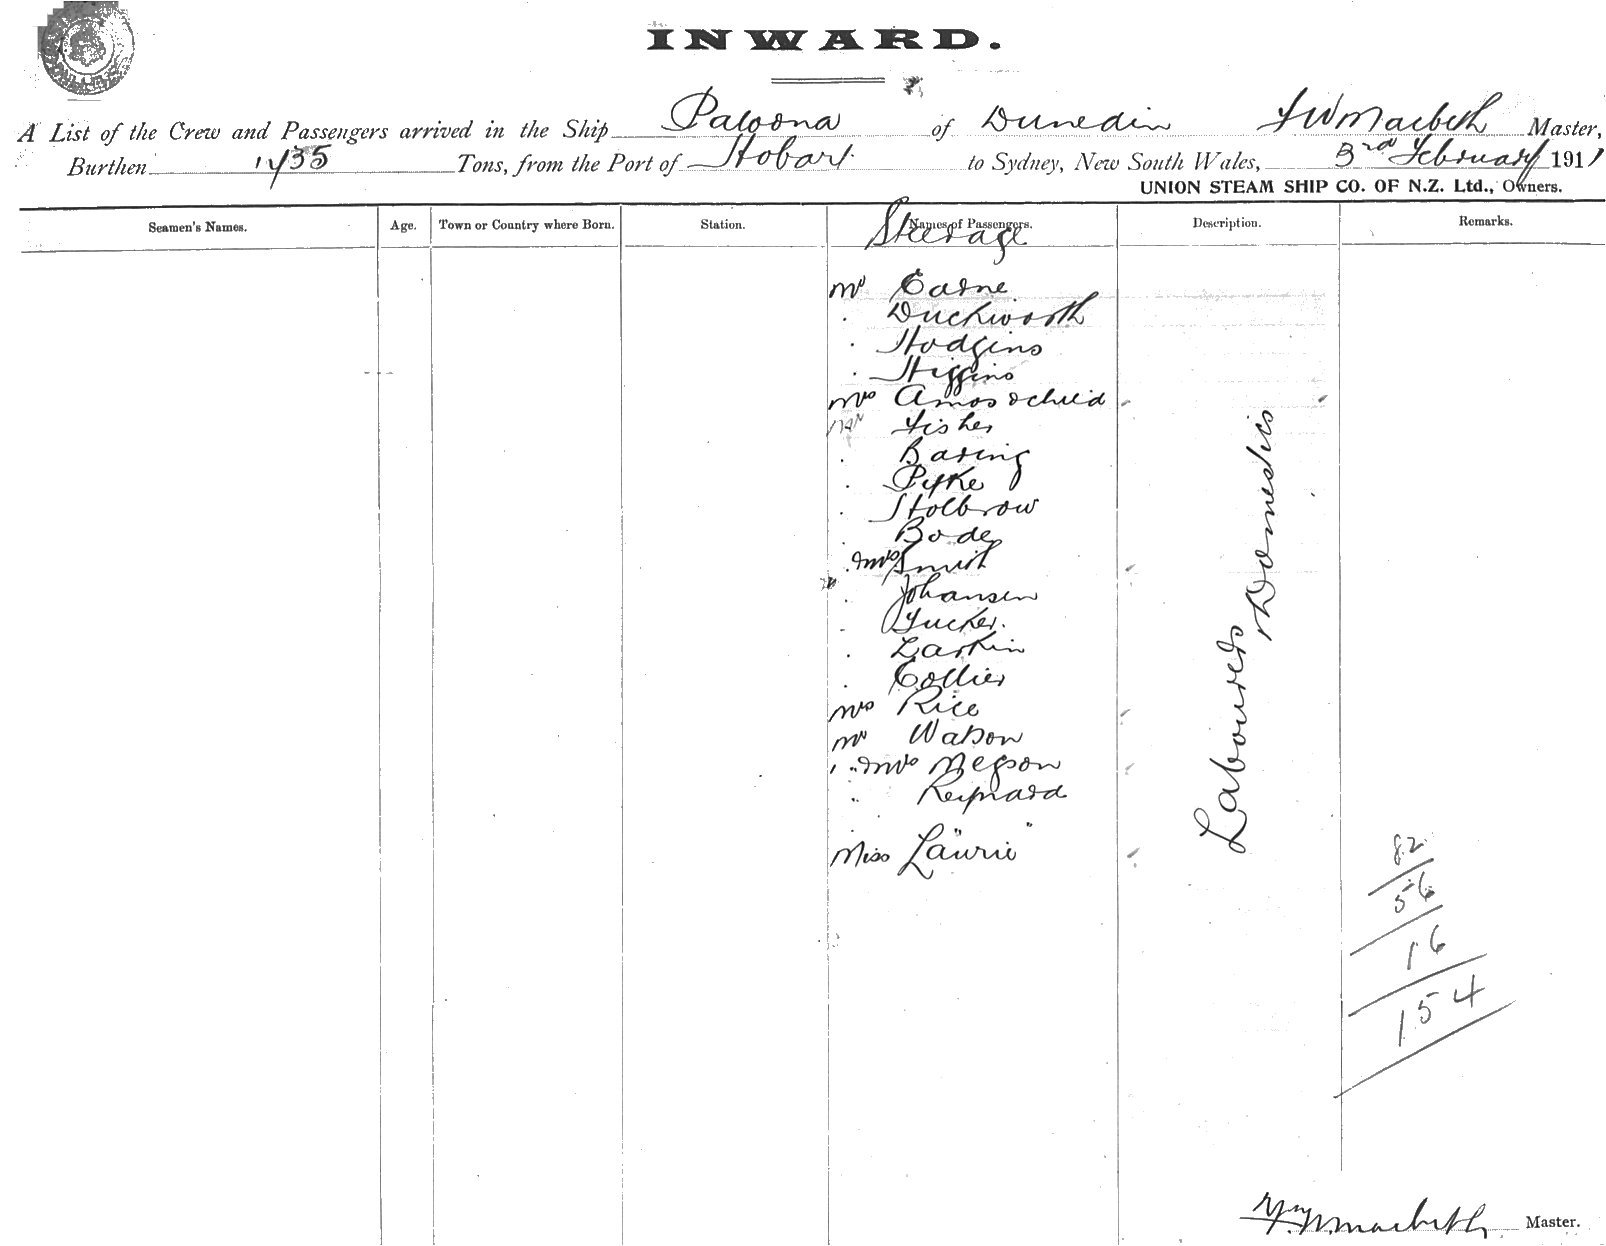 INWARD.
A List of the Crew and Passengers arrived in the Ship Paloona of Dunedin F W Macbeth Master,
Burthen 1735 Tons, from the Port of Hobart to Sydney, New South Wales, 3rd February 1911
UNION STEAM SHIP CO. OF N.Z. Ltd., Owners.
Seamen's Names. Age. Town or Country where Born. Station. Names of Passengers. Description. Remarks.
Steerage
Mr Earne
. Duckworth
. Hodgins
. Higgins
Mrs Amos & child
Mr Fisher
. Baring
. Pyke
. Holbrow
. Bode
. & Mrs Smith
. Johansen
. Tucker.
. Larkin
. Collier
Mrs Rice
Mr Watson
" & Mrs Megson
" Reynard
Miss "Laurie"
Labourers
& Domestics
82
56
16
154
Macbeth Master.